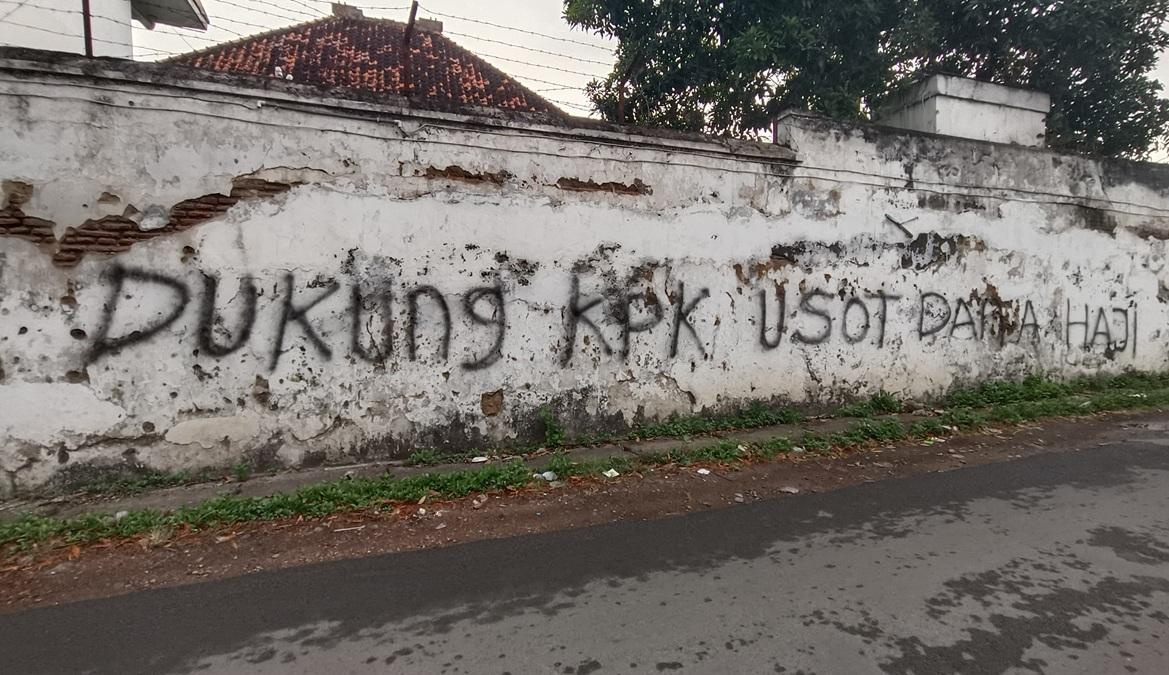 DUKUNG KPK USOT DANA HAJI